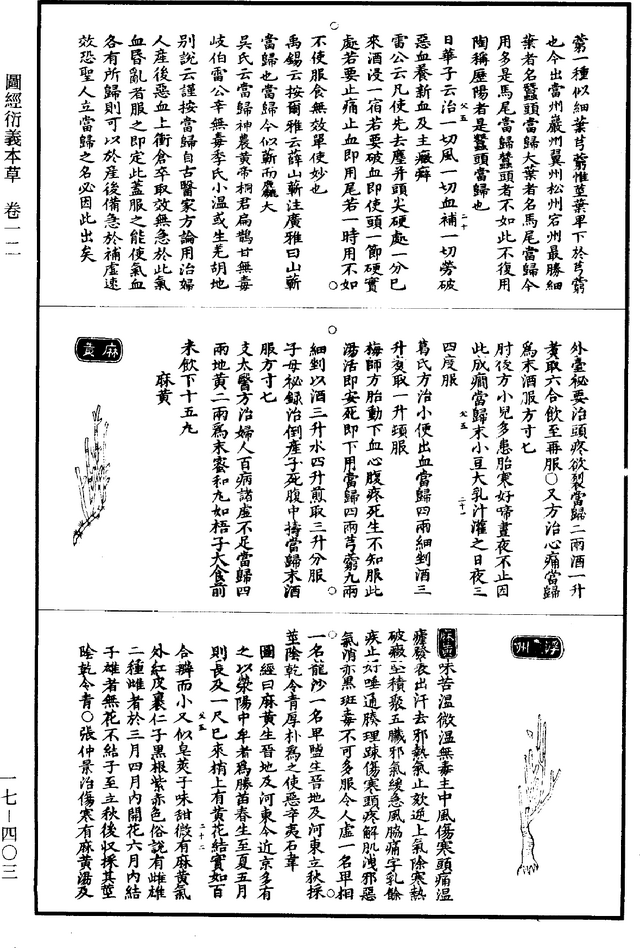 圖經衍義本草 卷一二
一七—四〇三
藭一種似細葉芎藭惟莖葉卑下於芎藭
也今出當州巖州翼州松州宕州最勝細
葉者名蠶頭當歸大葉者名馬尾當歸今
用多是馬尾當歸蠶頭者不如此不復用
陶稱歷陽者是蠶頭當歸也
日華子云治一切風一切血補一切勞破
惡血養新血及主癥癖
雷公云凡使先去塵并頭尖硬處一分已
來酒浸一宿若要破血即使頭一節硬實
處若要止痛止血即用尾若一時用不如
不使服食無效單使妙也
禹錫云按爾雅云薜山蘄注廣雅曰山蘄
當歸也當歸今似蘄而麤大
吳氏云當歸神農黃帝桐君扁鵲甘無毒
岐伯雷公辛無毒李氏小溫或生羌胡地
別說云謹按當歸自古醫家方論用治婦
人産後惡血上衝倉卒取效無急於此氣
血昏亂者服之即定此蓋服之能使氣血
各有所歸則可以於産後備急於補虛速
效恐聖人立當歸之名必因此出矣
外臺秘要治頭疼欲裂當歸二兩酒一升
煑取六合飲至再服○又方治心痛當歸
爲末酒服方寸匕
肘後方小兒多患胎寒好啼晝夜不止因
此成癎當歸末小豆大乳汁灌之日夜三
四度服
葛氏方治小便出血當歸四兩細剉酒三
升煑取一升頓服
梅師方胎動下血心腹疼死生不知服此
湯活即安死即下用當歸四兩芎藭九兩
細剉以酒三升水四升煎取三升分服
子母秘録治倒産子死腹中擣當歸末酒
服方寸七
支太醫方治婦人百病諸虛不足當歸四
兩地黃二兩爲末蜜和丸如梧子大食前
米飲下十五丸
麻黃
麻黃
浮州
麻黃味苦溫微溫無毒主中風傷寒頭痛溫
瘧發表出汗去邪熱氣止欬逆上氣除寒熱
破癥堅積聚五臟邪氣緩急風脇痛字乳餘
疾止好唾通腠理踈傷寒頭疼解肌洩邪惡
氣消赤黑斑毒不可多服令人虛一名卑相
一名龍沙一名卑鹽生晉地及河東立秋採
莖陰乾令青厚朴爲之使惡辛夷石韋
圖經曰麻黃生晉地及河東今近京多有
之以滎陽中牟者爲勝苗春生至夏五月
則長及一尺已來梢上有黃花結實如百
合瓣而小又似皂莢子味甜微有麻黃氣
外紅皮裏仁子黑根紫赤色俗說有雌雄
二種雌者於三月四月內開花六月內結
子雄者無花不結子至立秋後收採其莖
陰乾令青○張仲景治傷寒有麻黃湯及